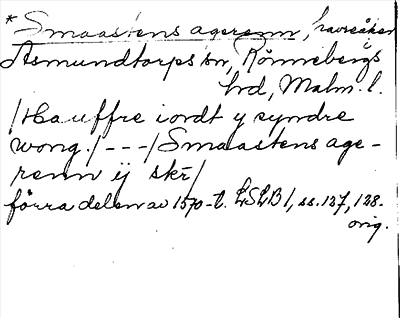 * Smaastens agerenn, havreåker
i
Asmundtorps sn, Rönnebergs
hd, Malm. l.
/Hauffre iordt y syndre
wong./---/Smaastens age-
renn ij skr/
förra delen av 1570-t. LSLB I, ss. 127, 128.
orig.